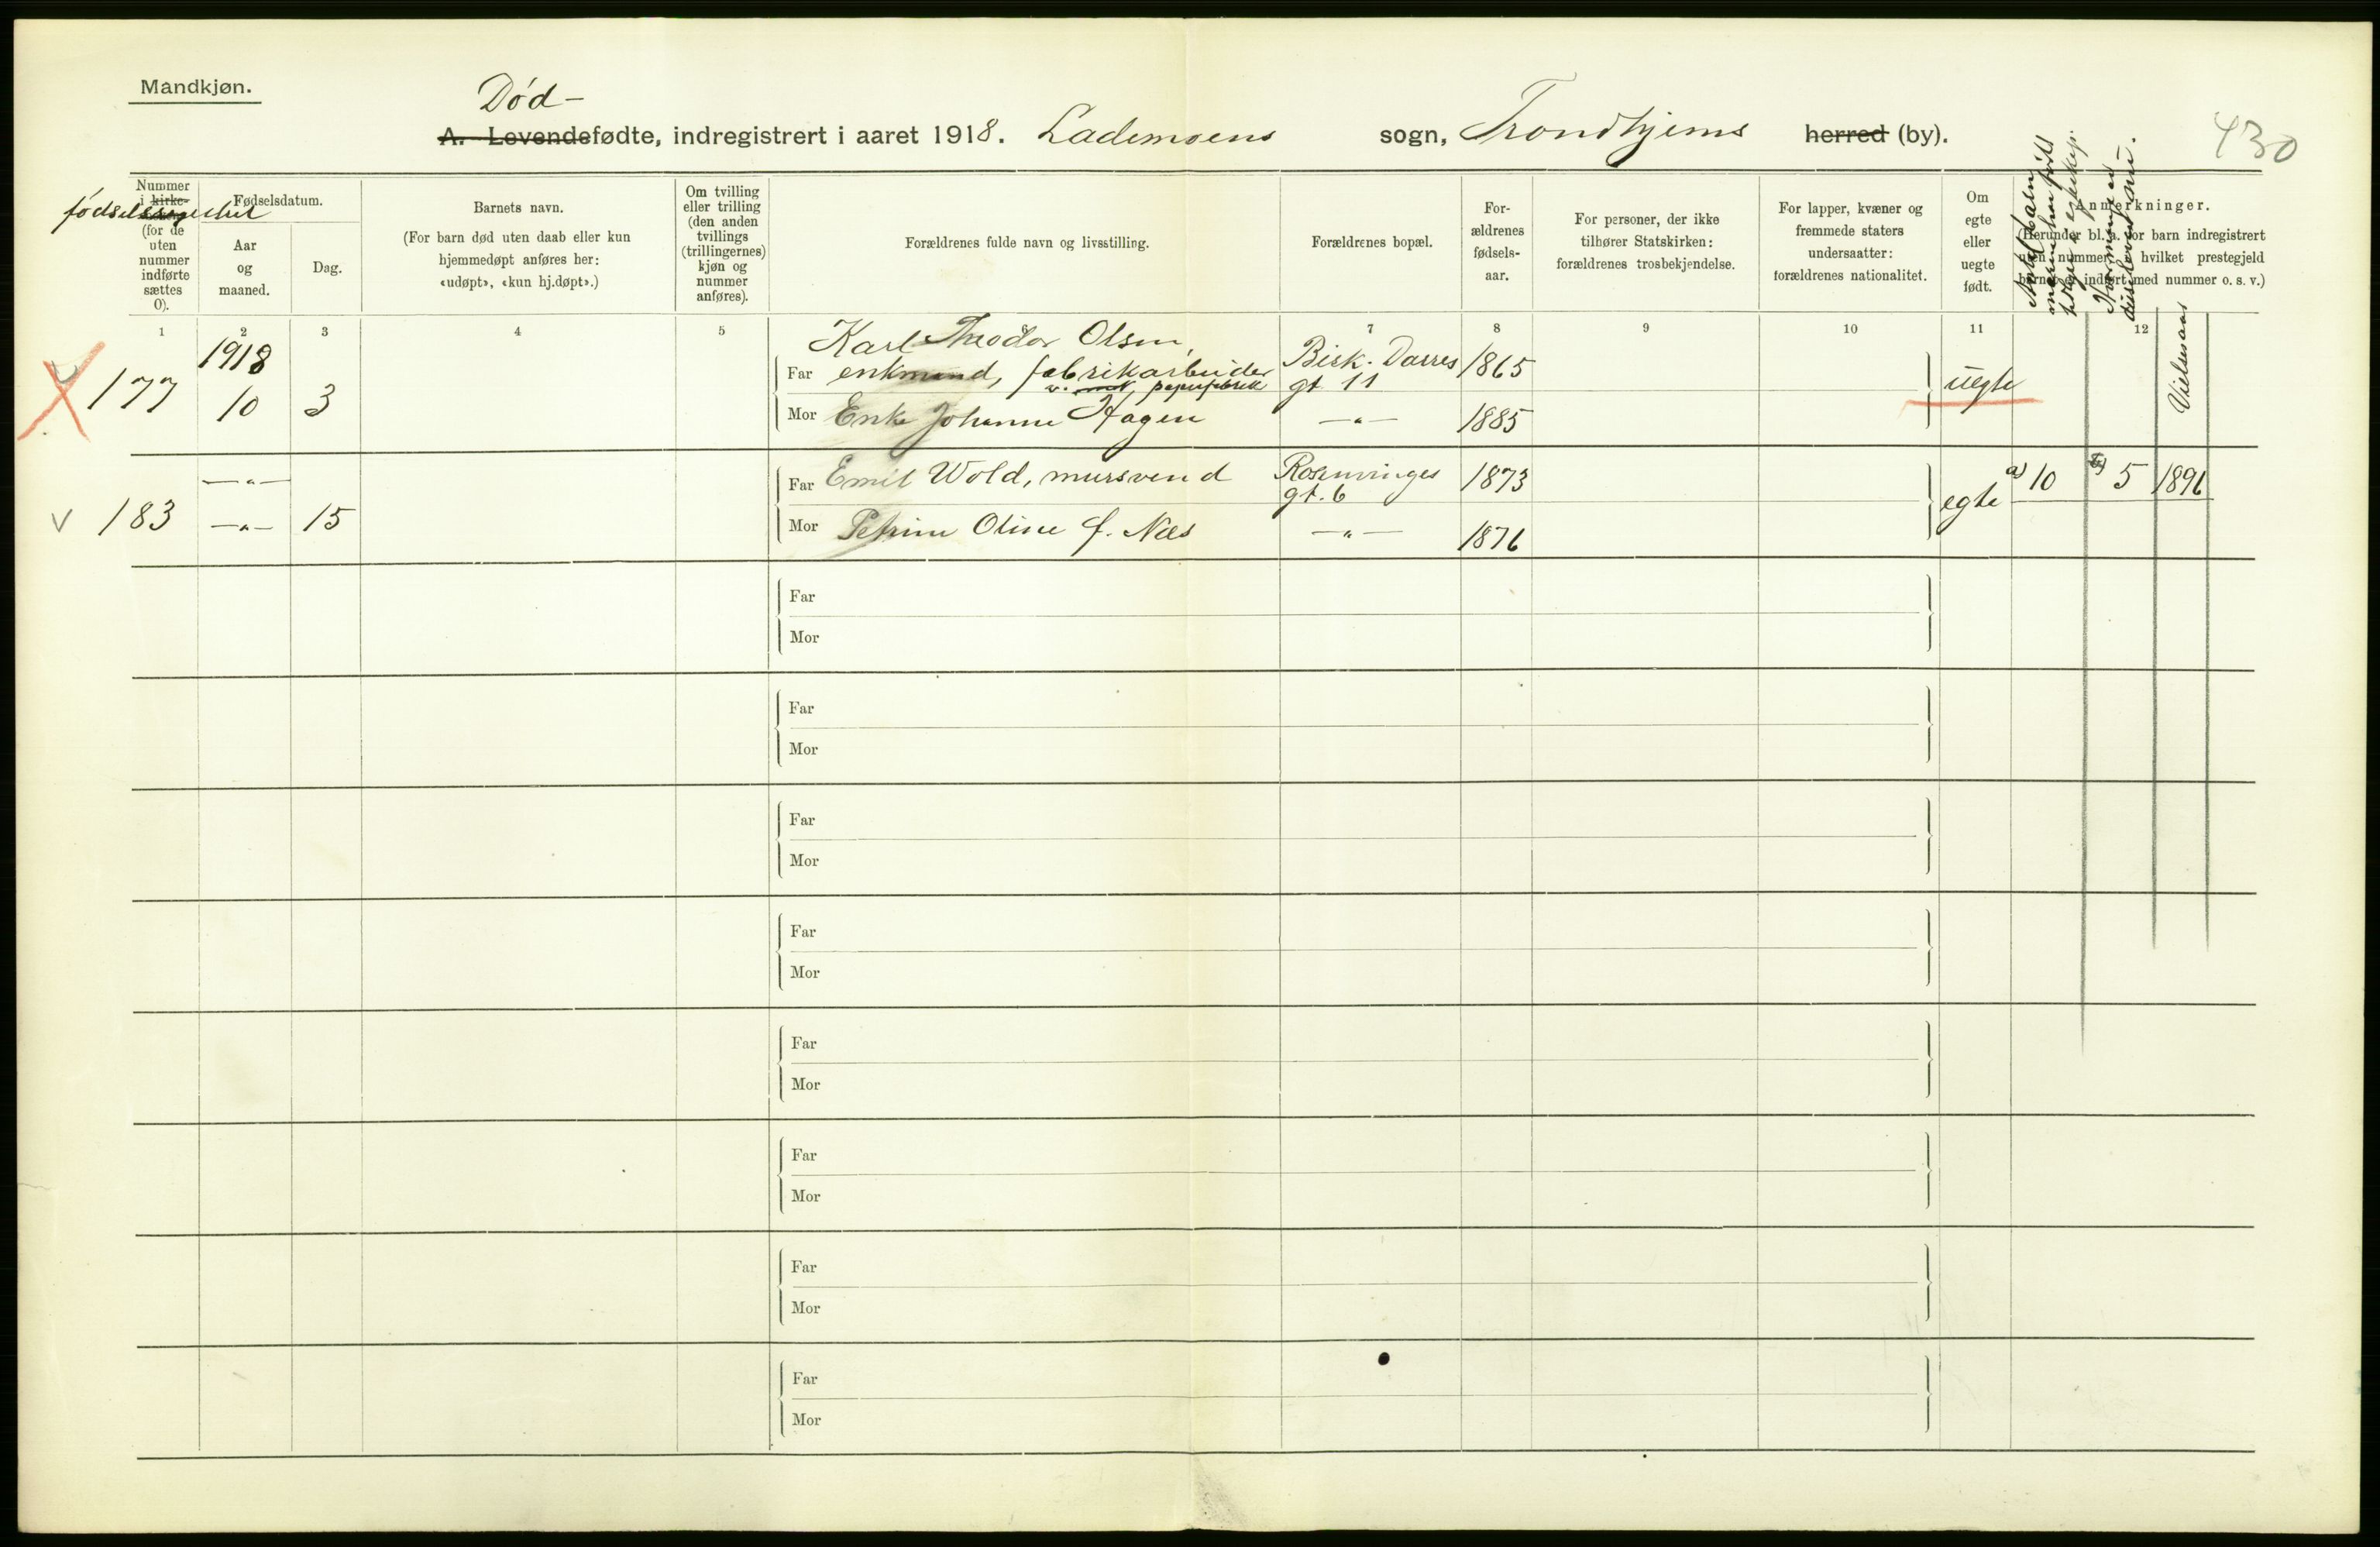 Mandkjøn.
Død-
A. Levendefødte, indregistrert i aaret 1918. Lademoens sogn, Trondhjems herred (by).
430
Nummer
i kirke-
fødselsregistret
(for de
uten
nummer
indførte
sættes
0).
Fødselsdatum.
Aar
og
maaned.
Dag.
Barnets navn.
(For barn død uten daab eller kun
hjemmedøpt anføres her:
«udøpt», «kun hj.døpt».)
Om tvilling
eller trilling
(den anden
tvillings
(trillingernes)
kjøn og
nummer
anføres).
Forældrenes fulde navn og livsstilling.
Forældrenes bopæl.
For-
ældrenes
fødsels-
aar.
For personer, der ikke
tilhører Statskirken:
forældrenes trosbekjendelse.
For lapper, kvæner og
fremmede staters
undersaatter:
forældrenes nationalitet.
Om
egte
eller
uegte
født.
Anmerkninger.
(Herunder bl. a. for barn indregistrert
uten nummer, i hvilket prestegjeld
barnet er indført med nummer o. s. v.)
Antal barn
moren har født
Hvormange er
Vielsesaar
1 2 3 4 5 6 7 8 9 10 11 12
177 1918 10 3
Far Karl Theodor Olsen,
enkmand, fabrikarbeider
v. papirfabrik
Bisk. Darres
gt 11
1865
uegte
Mor Enke Johanne Hagen —„— 1885
183 —„— —„— 15
Far Emil Wold, mursvend
Rosenvinges
gt. 6
1873
egte
a) 10 b) 5 1896
Mor Petrine Oline f. Næs —„— 1876
Far
Mor
Far
Mor
Far
Mor
Far
Mor
Far
Mor
Far
Mor
Far
Mor
Far
Mor